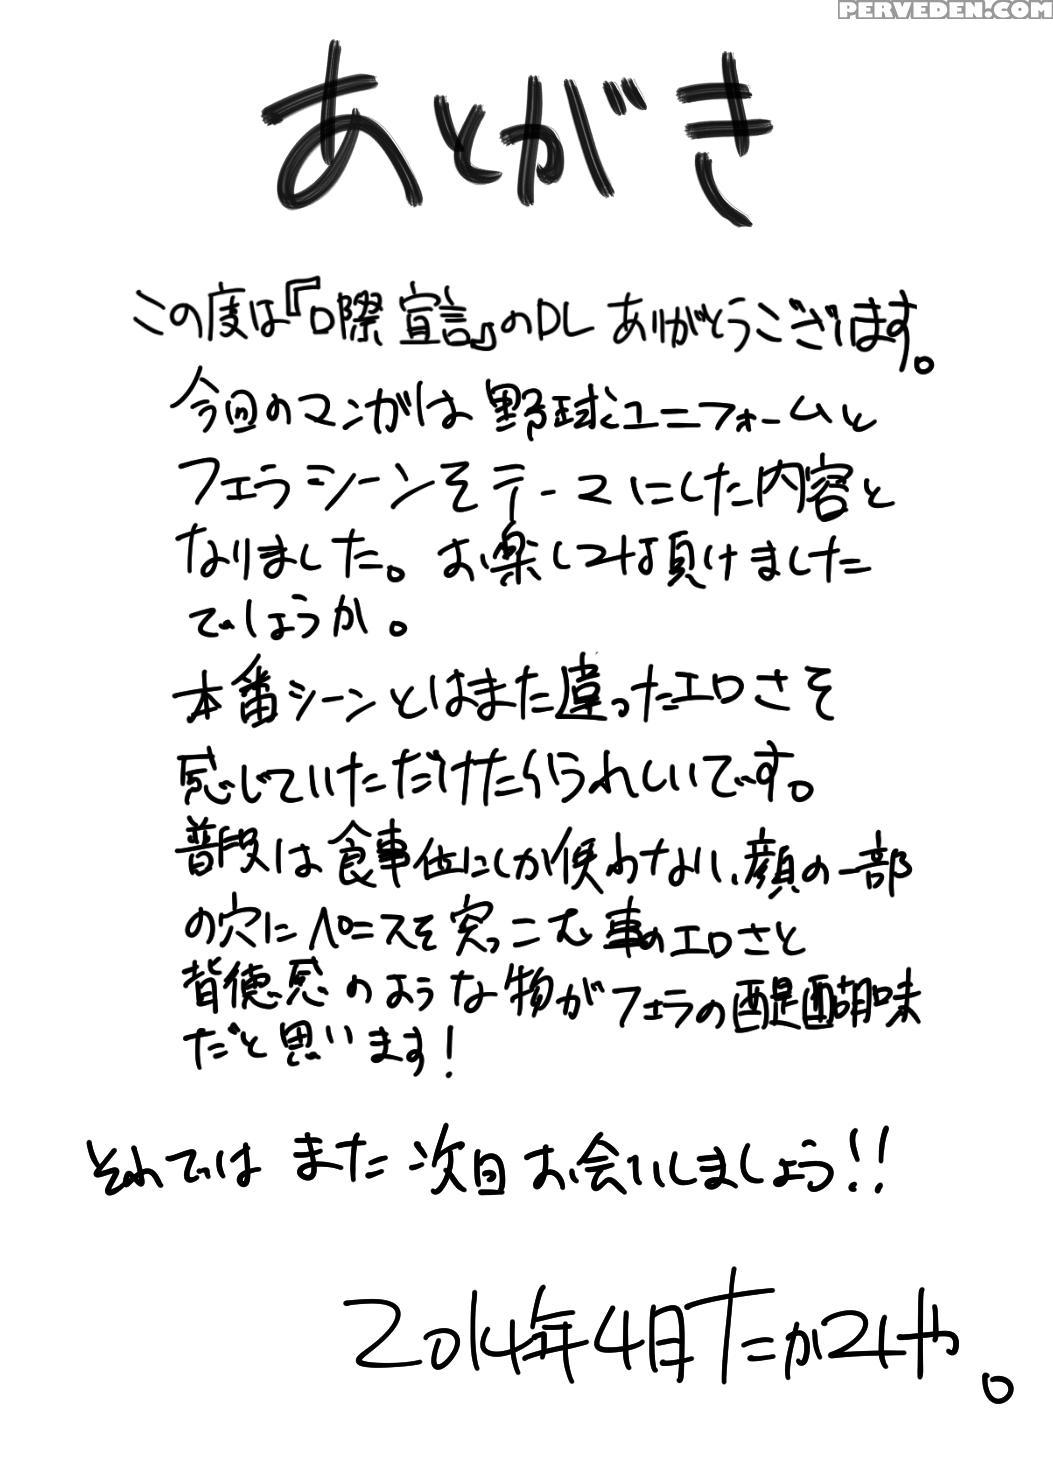 PERVEDEN.COM
あとがき
この度は『口際宣言』のDLありがとうございます。
今回のマンガは野球ユニフォームと
フェラシーンをテーマにした内容と
なりました。お楽しみ頂けました
でしょうか。
本番シーンとはまた違ったエロさを
感じていただけたらうれしいです。
普段は食事位にしか使わない、顔の一部
の穴にペニスを突っこむ事のエロさと
背徳感のような物がフェラの醍醐味
だと思います!
それではまた次回お会いしましょう!!
2014年4月たかみや。